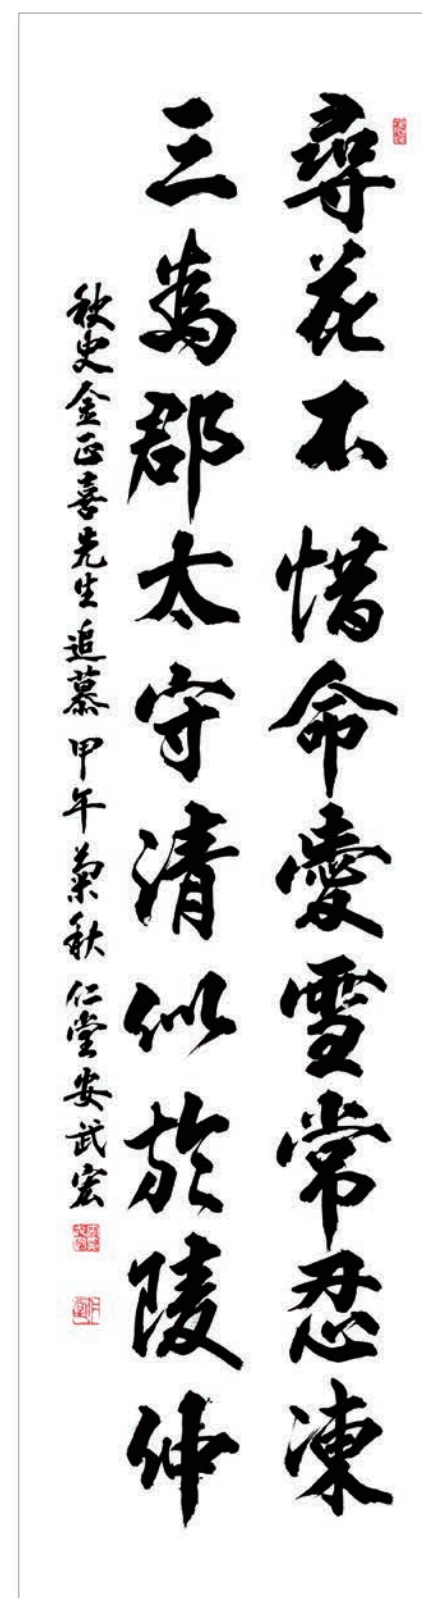 尋花不惜命愛雪常忍凍
三爲郡太守清似於陵仲
秋史金正喜先生追慕 甲午菊秋 仁堂安武宏